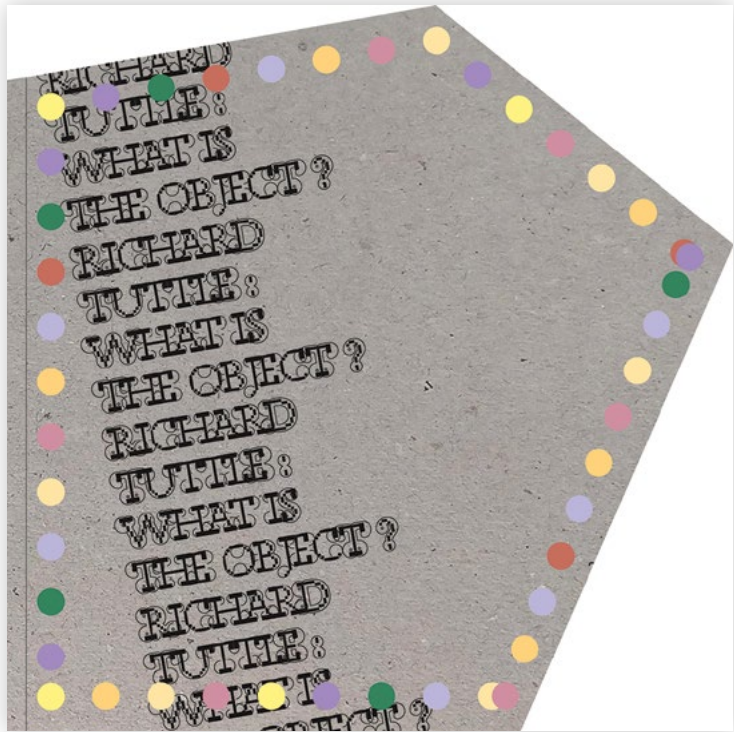 RICHARD
TUTTLE:
WHAT IS
THE OBJECT?
RICHARD
TUTTLE:
WHAT IS
THE OBJECT?
RICHARD
TUTTLE:
WHAT IS
THE OBJECT?
RICHARD
TUTTLE:
WHAT IS
OBJECT?